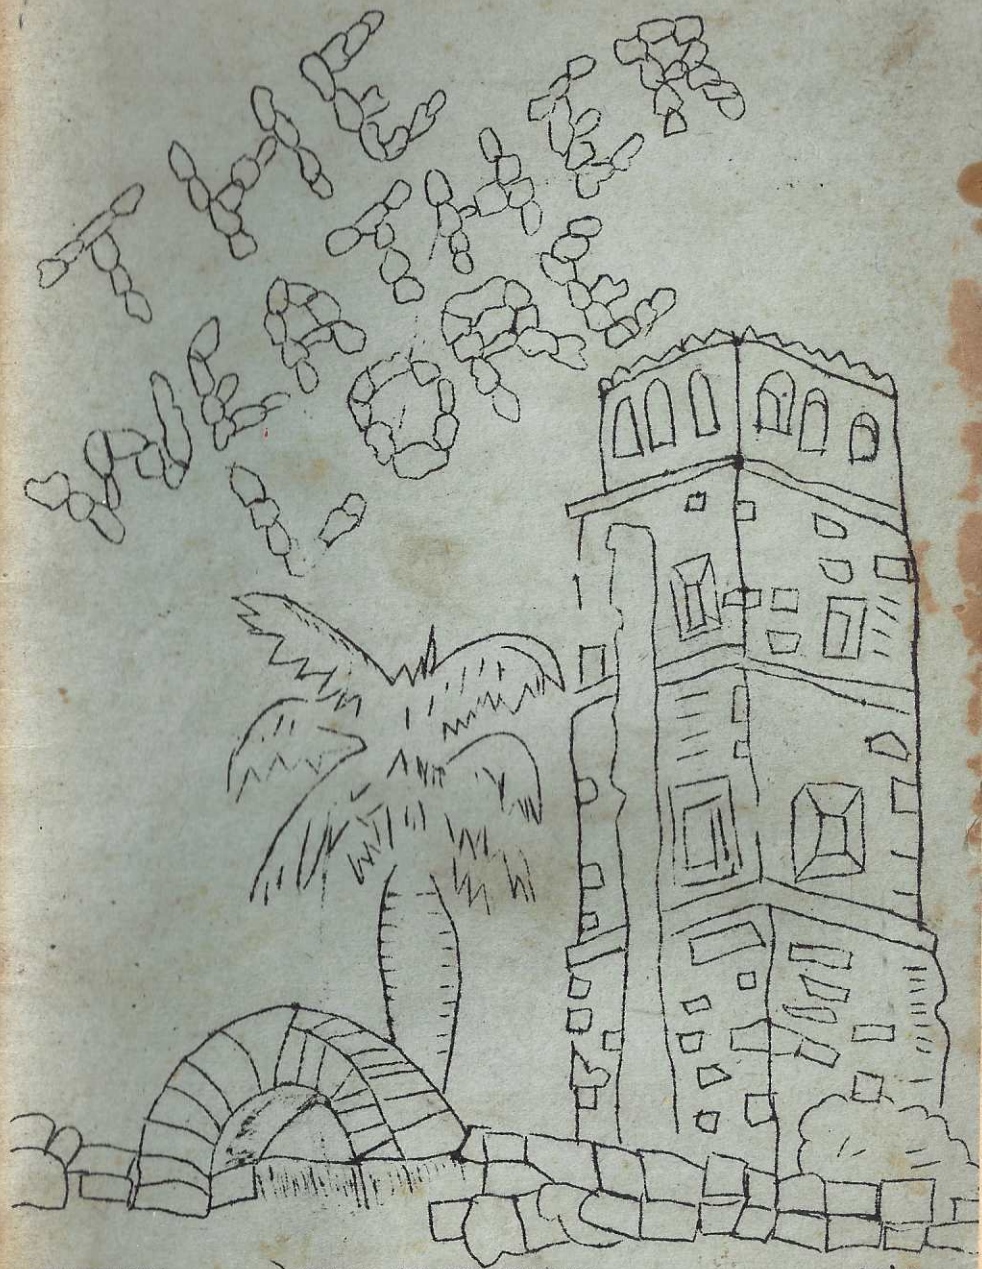 THE
WEATHER
LORE